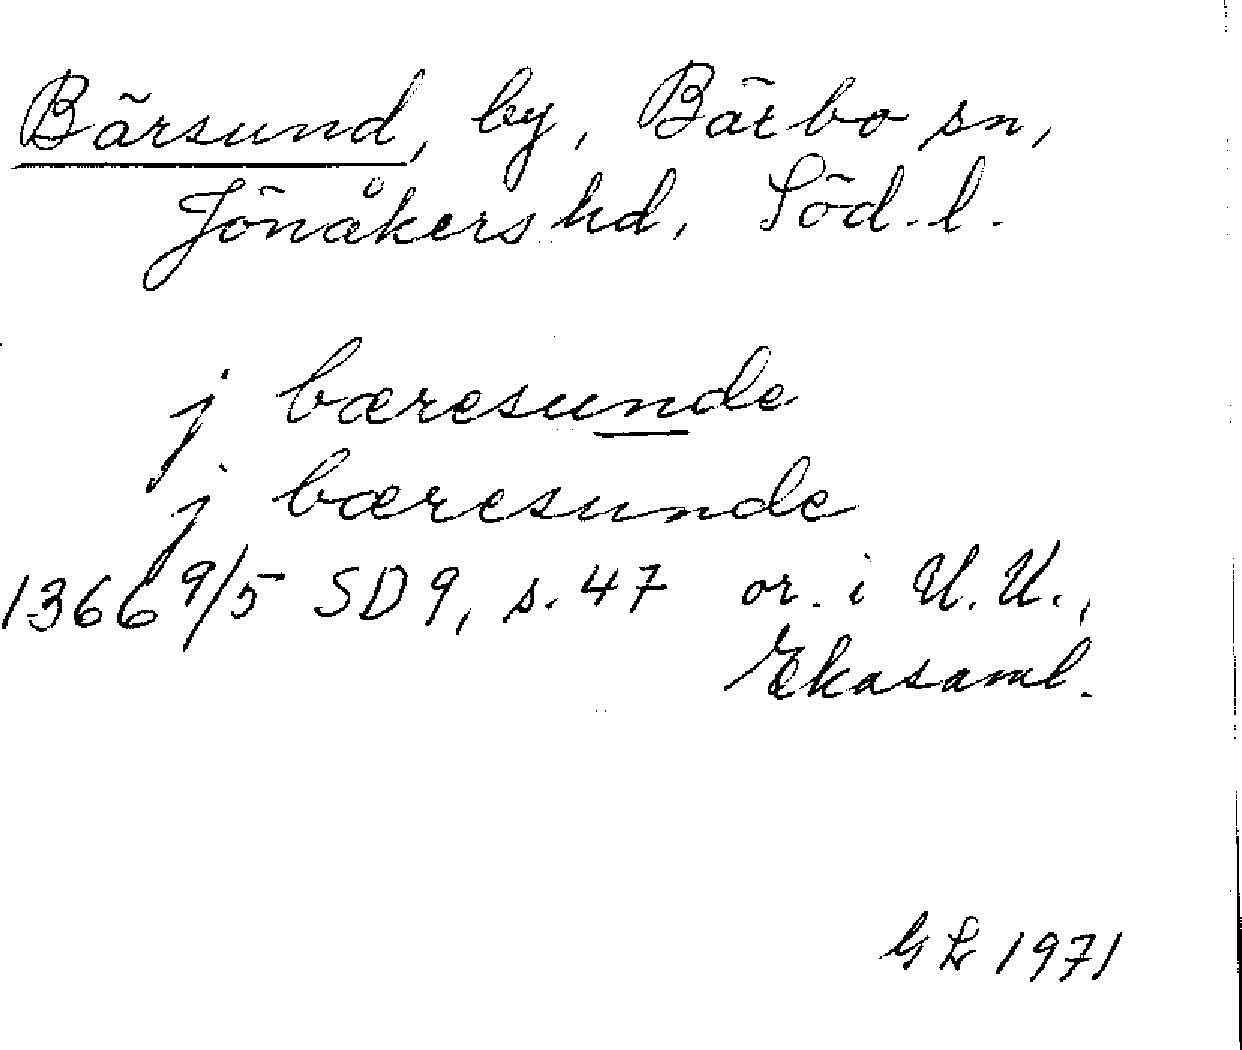 Bärsund, by, Bärbo sn,
Jönåkers hd, Söd. l.
j bæresunde
j bæresunde
1366 9/5 SD 9, s. 47 or. i U. U.,
Ekasaml.
GL 1971